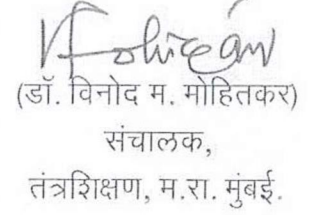 (डॉ. विनोद म. मोहितकर)
संचालक,
तंत्रशिक्षण, म.रा. मुंबई.